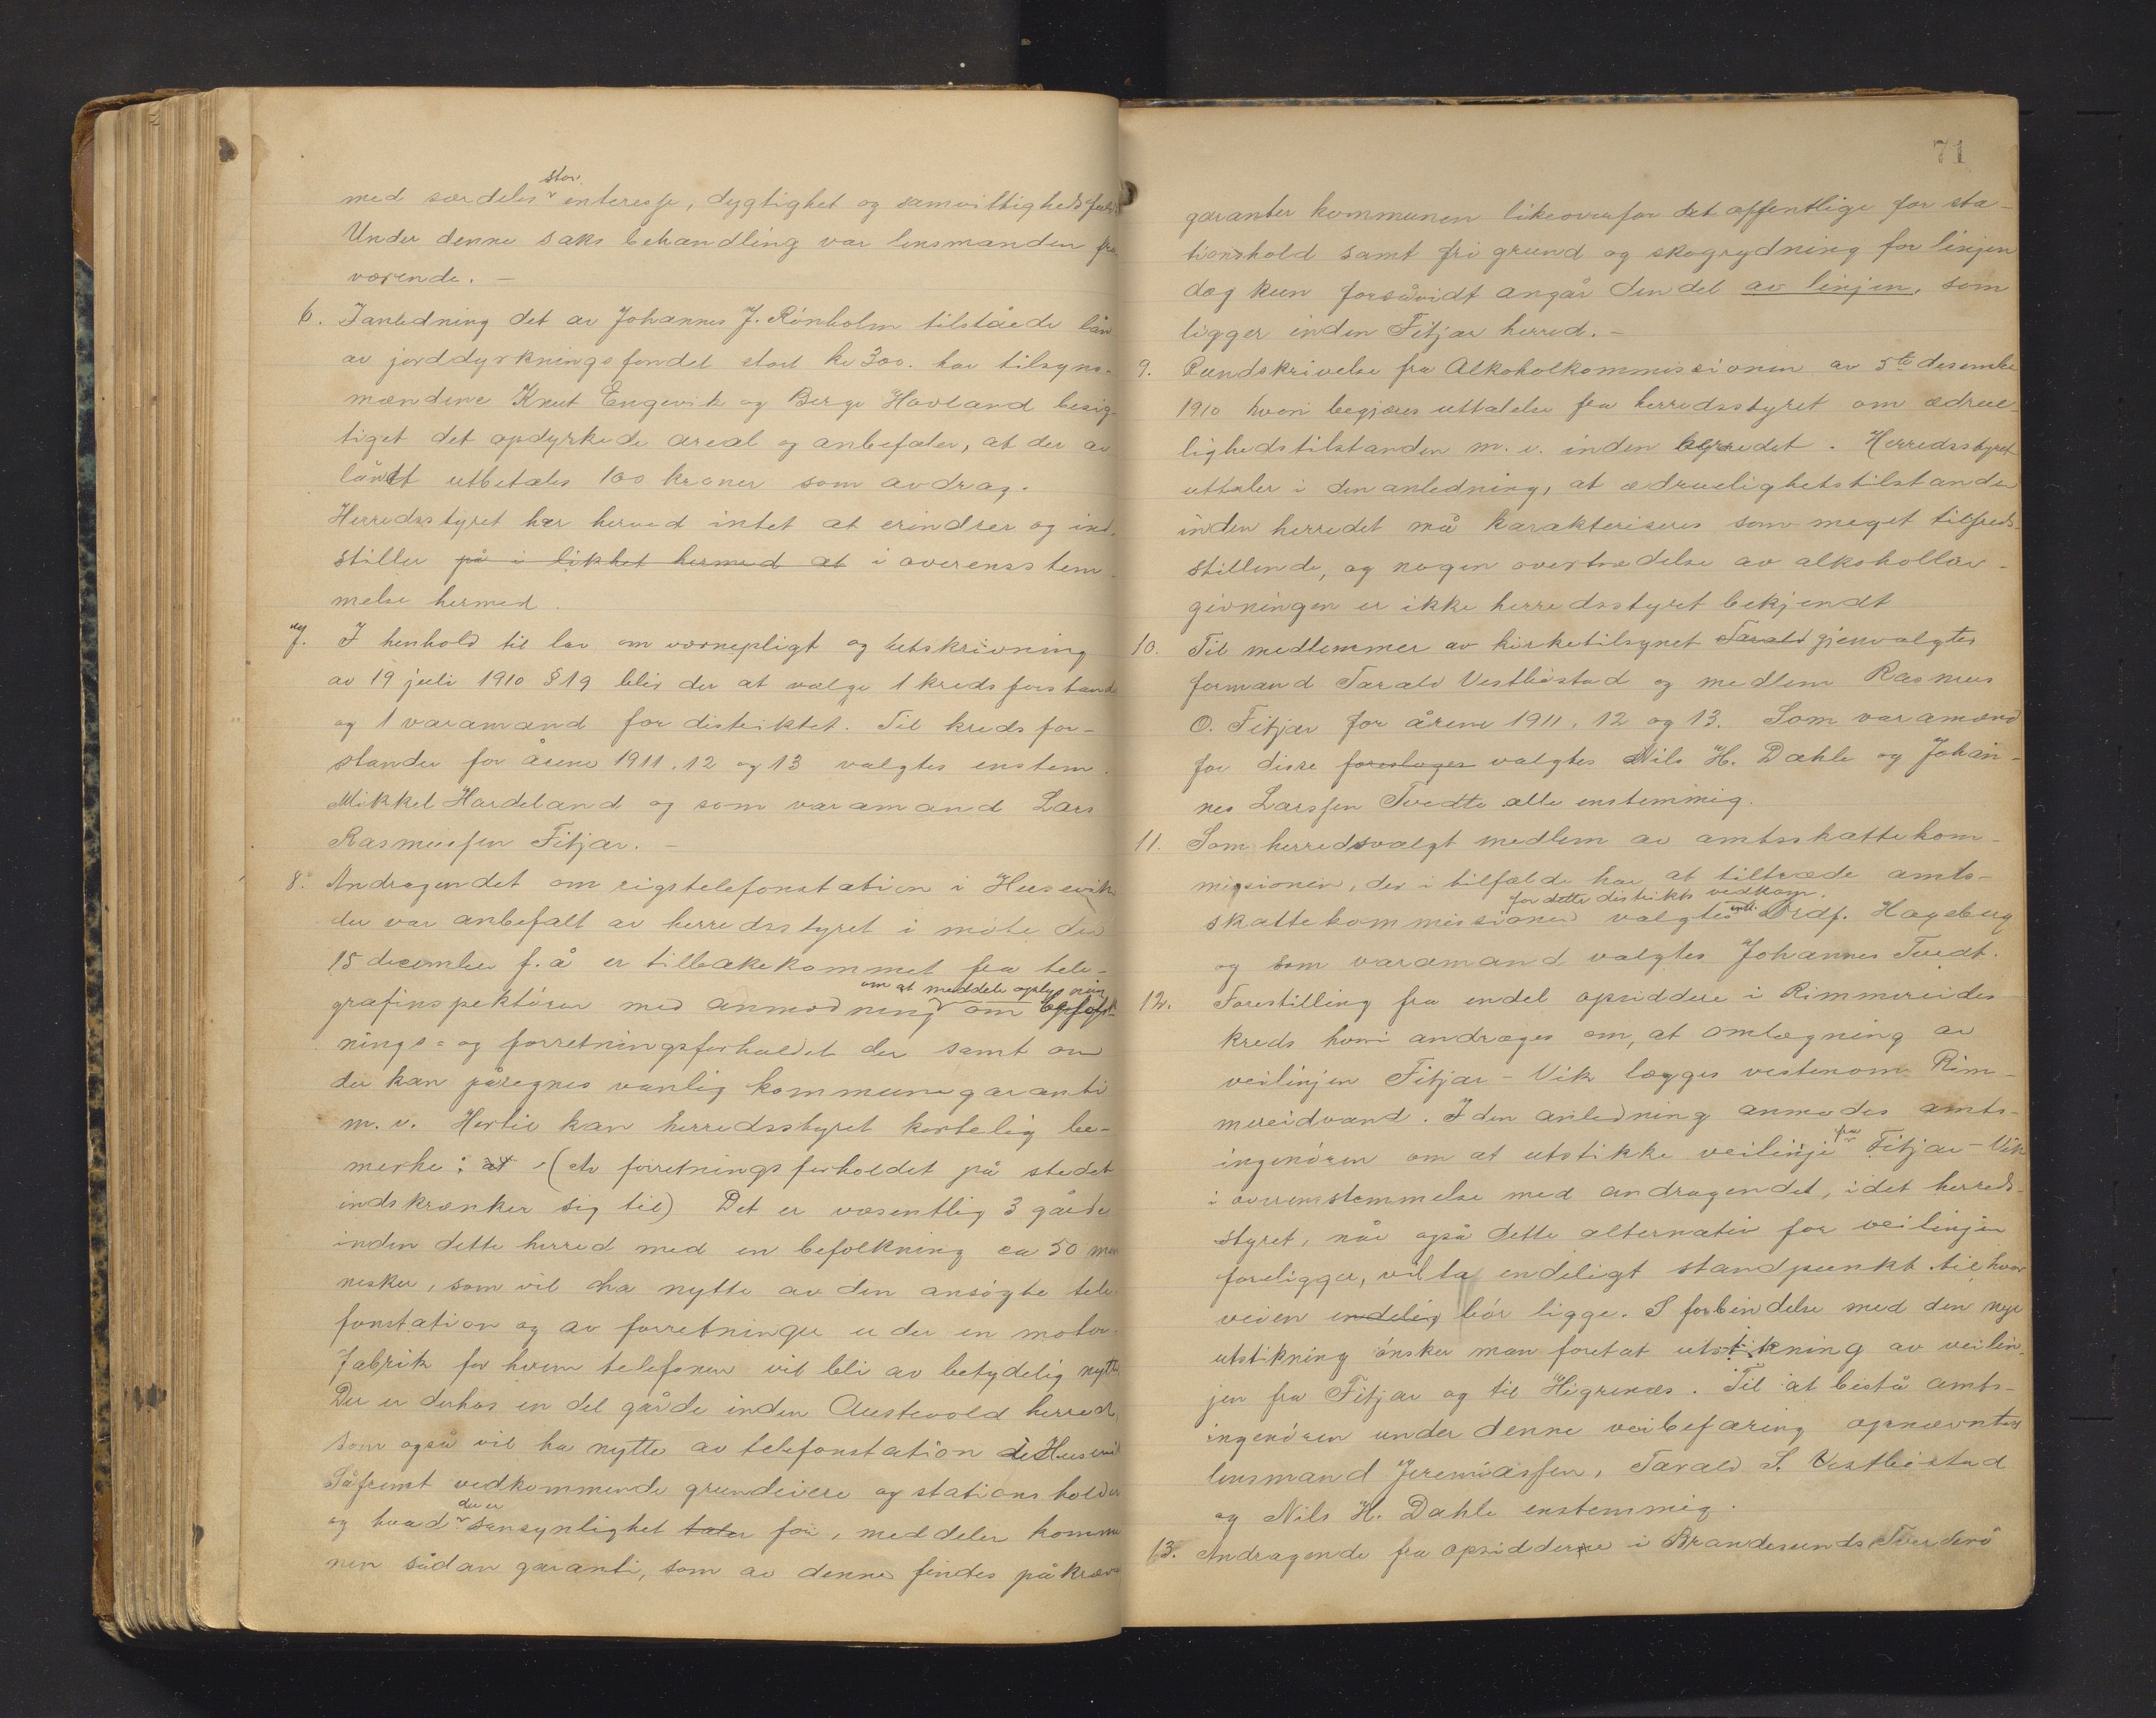 stor
med særdeles interesse, dygtighet og samvittighedsfuld
Under denne saks behandling var lensmanden fra
værende. —
6. I anledning det av Johannes J. Rönholm tilståede lån
av jorddyrkningsfondet stort kr 300. har tilsyns-
mændene Knut Engevik og Berge Havland besig-
tiget det opdyrkede areal og anbefaler, at der av
lånet utbetales 100 kroner som avdrag.
Herredsstyret har herved intet at erindrer og ind-
stiller på i likhet hermed at i overensstem-
melse hermed.
7. I henhold til lov om værnepligt og utskrivning
av 19 juli 1910 § 19 blir der at vælge 1 kredsforstander
og 1 varamand for distriktet. Til kredsfor-
stander for årene 1911. 12 og 13 valgtes enstem.
Mikkel Hardeland og som varamand Lars
Rasmussen Fitjar. —
8. Andragendet om rigstelefonstation i Husevik
der var anbefalt av herredsstyret i möte den
15 december f. å er tilbakekommet fra tele-
om at meddele oplysning
grafinspektören med anmodning om befolk-
nings- og forretningsforholdet der samt om
der kan påregnes vanlig kommunegaranti
m. v. Hertil kan herredsstyret kortelig be-
merke: at (At forretningsforholdet på stedet
indskrænker sig til) Det er væsentlig 3 gårde
inden dette herred med en befolkning ca 50 men
nesker, som vil ha nytte av den ansögte tele-
fonstation og av forretninger er der en motor-
fabrik for hvem telefonen vil bli av betydelig nytte
Der er derhos en del gårde inden Austevold herred,
som også vil ha nytte av telefonstation i Husevik
Såfremt vedkommende grundeiere og stationsholder
der er
og hvad sansynlighet taler for, meddeler kommu
nen sådan garanti, som av denne findes påkræve
71
garanter kommunen likeoverfor det offentlige for sta-
tionshold samt fri grund og skogrydning for linjen
dog kun forsåvidt angår den del av linjen, som
ligger inden Fitjar herred. —
9. Rundskrivelse fra Alkoholkommissionen av 5te desember
1910 hvori begjæres uttalelse fra herredsstyret om ædrue-
lighedstilstanden m. v. inden herredet. Herredsstyret
uttaler i den anledning, at ædruelighetstilstanden
inden herredet må karakteriseres som meget tilfreds-
stillende, og nogen overtrædelse av alkohollov-
givningen er ikke herredsstyret bekjendt
10. Til medlemmer av kirketilsynet Tarald gjenvalgtes
formand Tarald Vestböstad og medlem Rasmus
O. Fitjar for årene 1911. 12 og 13. Som varamænd
for disse foreslages valgtes Nils H. Dahle og Johan-
nes Larssen Tvedte alle enstemmig.
11. Som herredsvalgt medlem av amtsskattekom-
missionen, der i tilfælde har at tiltræde amts-
for dette distrikts vedkom.
skattekommissionen valgtes Hageberg
og som varamand valgtes Johannes Tvedt.
12. Forestilling fra endel opsiddere i Rimmereides
kreds hvori andrages om, at omlægning av
veilinjen Fitjar – Vik lægges vestenom Rim-
mereidvand. I den anledning anmodes amts-
fra
ingeniören om at utstikke veilinje Fitjar – Vik
i overensstemmelse med andragendet, idet herreds-
styret, når også dette alternativ for veilinjen
foreligger, vil ta endeligt standpunkt til hvor
veien endelig bör ligge. I forbindelse med den nye
utstikning önsker man foretat utstikning av veilin-
jen fra Fitjar og til Hegrenæs. Til at bistå amts-
ingeniören under denne veibefaring opnævntes
lensmand Jeremiassen, Tarald S. Vestböstad
og Nils H. Dahle enstemmig.
13. Andragende fra opsidderne i Brandesunds Tverderö